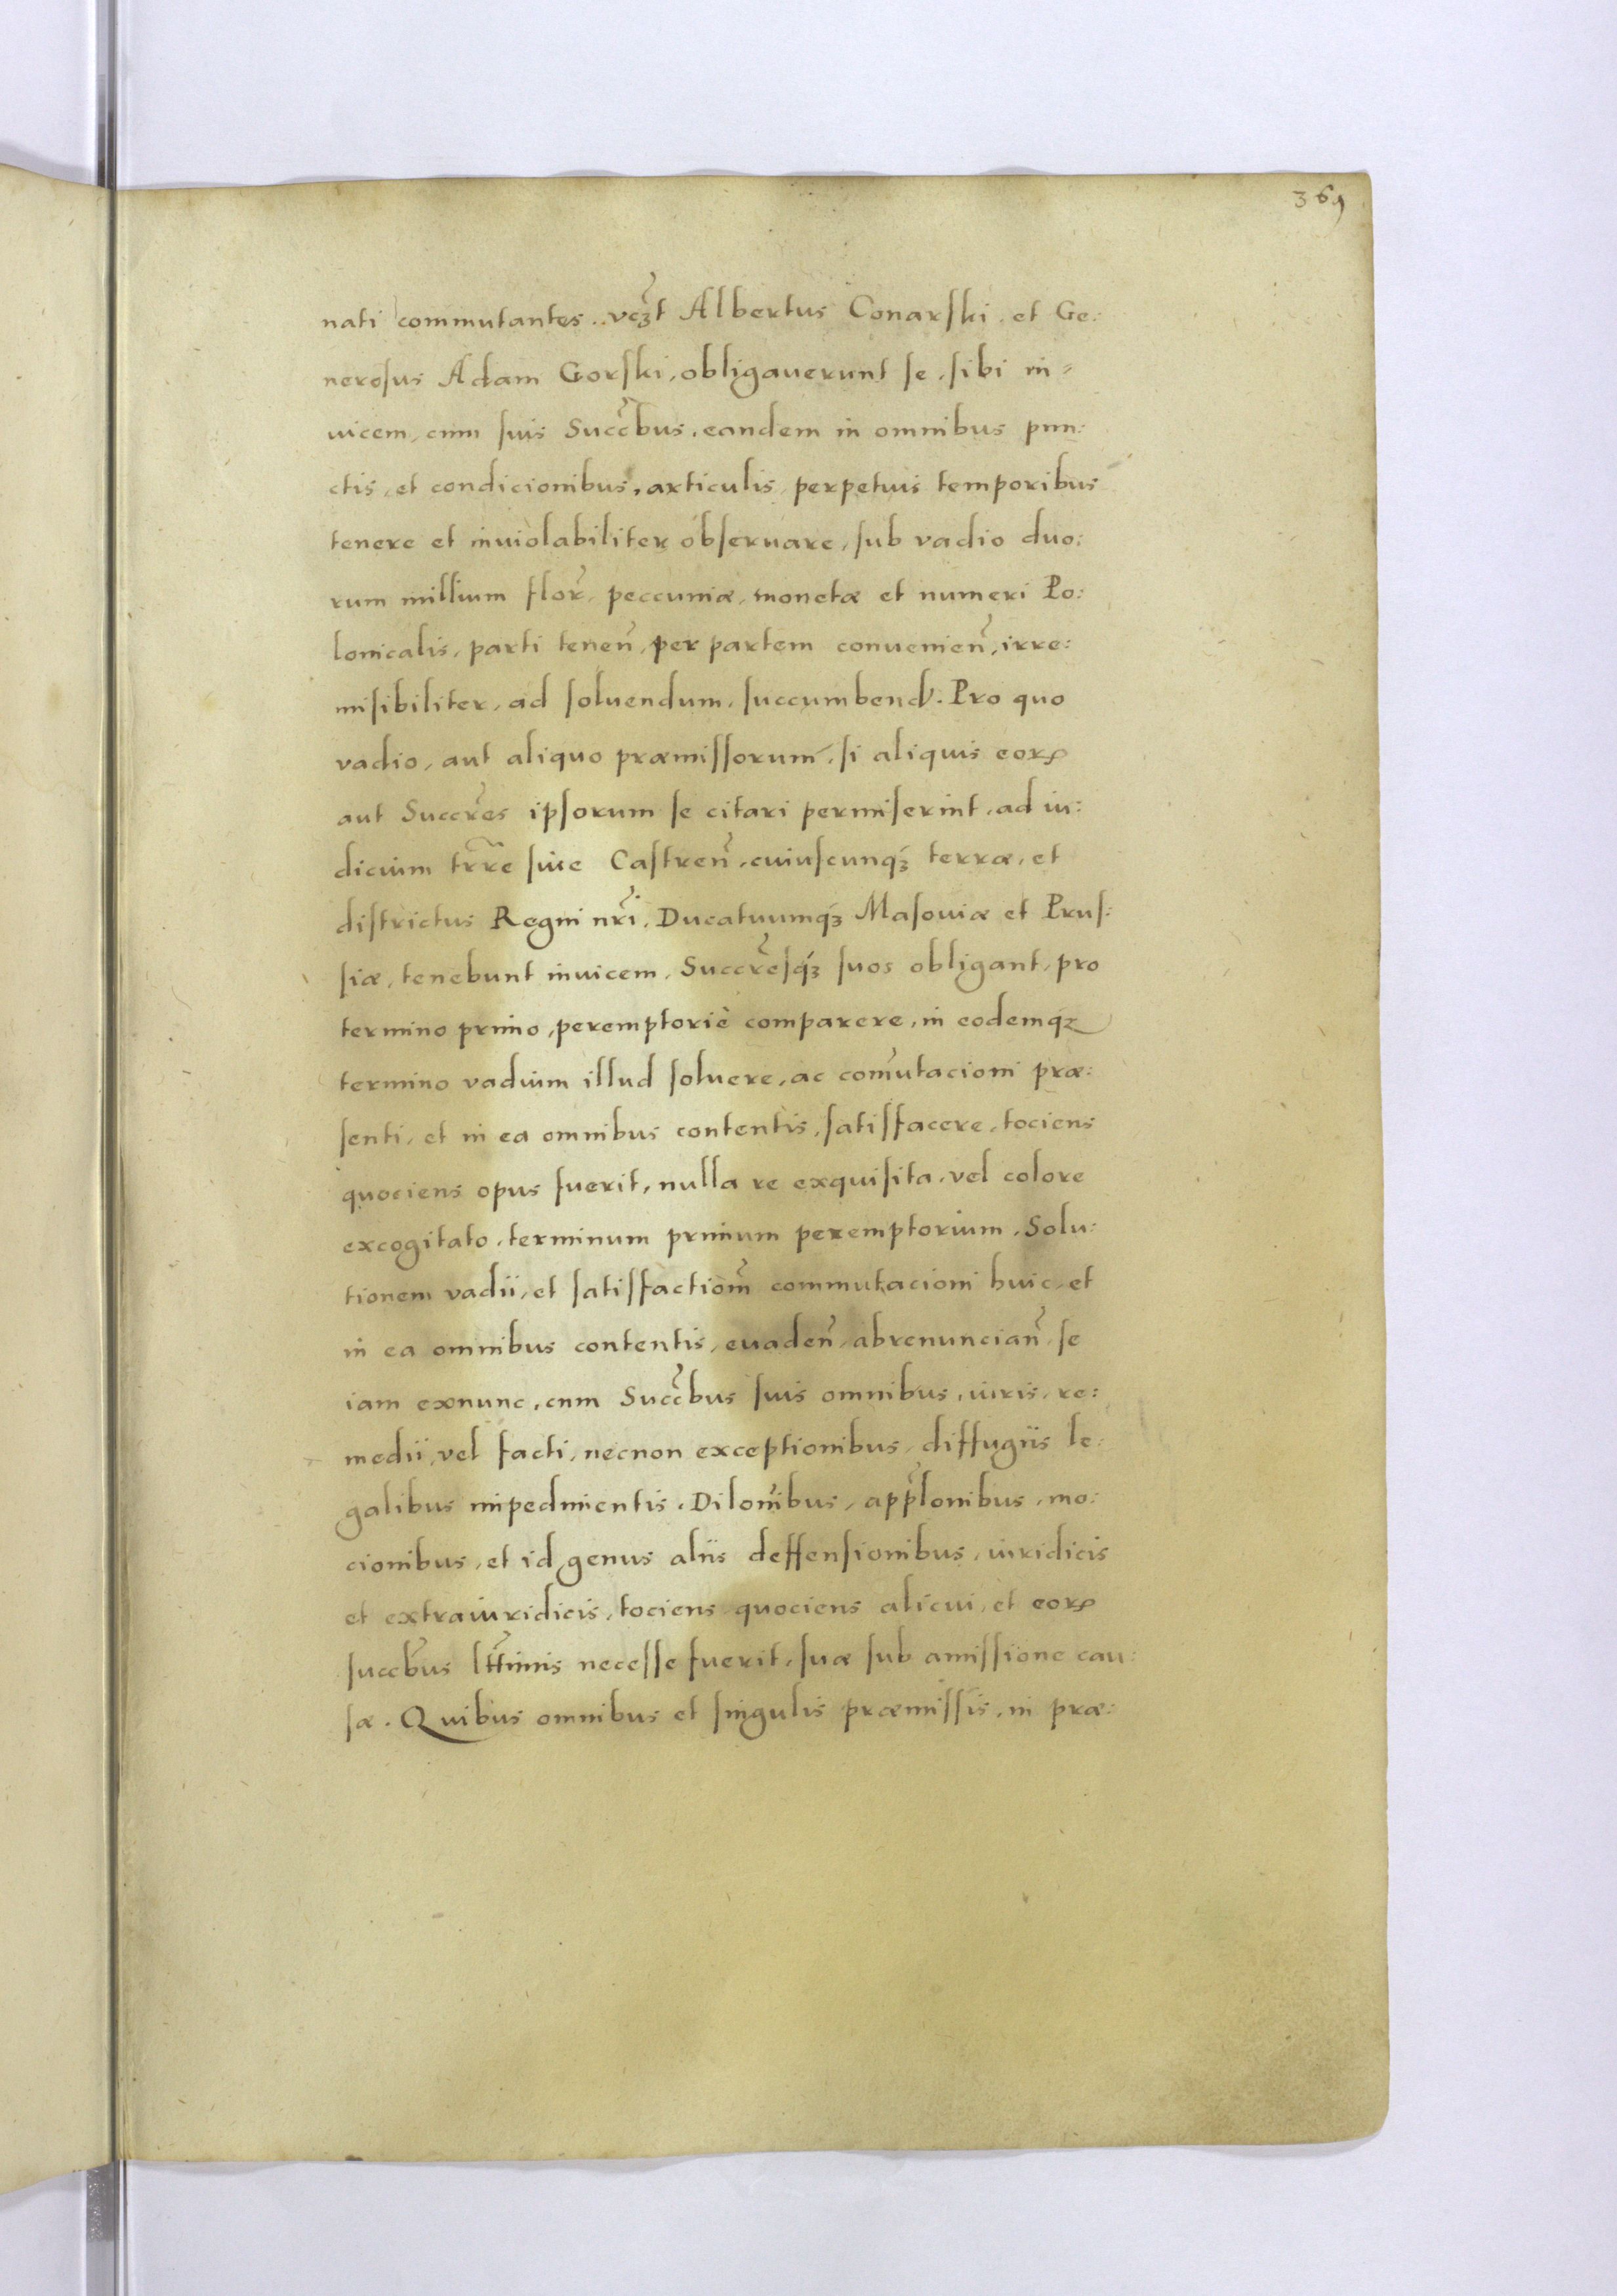 369
nati commutantes. vcꝫt Albertus Conarski, et Ge:
nerosus Adam Gorski, obligauerunt se, sibi in-
uicem, cum suis Succ̃bus, eandem in omnibus pun:
ctis, et condicionibus, articulis, perpetuis temporibus
tenere et inuiolabiliter obseruare, sub vadio duo:
rum millium flor̃, peccuniæ, monetæ et numeri Po:
lonicalis, parti teneñ, per partem conuenieñ, irre:
misibiliter, ad soluendum, succumbend. Pro quo
vadio, aut aliquo præmissorum, si aliquis eorꝝ
aut Succr̃es ipsorum se citari permiserint, ad iu:
dicium trr̃e siue Castreñ, cuiuscunqꝫ terræ, et
districtus Regni nr̃i, Ducatuumqꝫ Masouiæ et Prus:
siæ, tenebunt inuicem, Succr̃esqꝫ suos obligant, pro
termino primo, peremptoriè comparere, in eodemqꝫ
termino vadium illud soluere, ac com̃utacioni præ:
senti, et in ea omnibus contentis, satisfacere, tociens
quociens opus fuerit, nulla re exquisita, vel colore
excogitato, terminum primum peremptorium, Solu:
tionem vadii, et satisfactiom̃ commutacioni huic, et
in ea omnibus contentis, euadeñ, abrenunciañ, se
iam exnunc, cum Succ̃bus suis omnibus, iuris, re:
medii, vel facti, necnon exceptionibus, diffugiis le:
galibus impedimentis, Dilom̃ibus, app̃lonibus, mo:
cionibus, et id genus aliis deffensionibus, iuridicis
et extraiuridicis, tociens quociens alicui, et eorꝝ
succb̃us ltt̃imis necesse fuerit, suæ sub amissione cau:
sæ. Quibus omnibus et singulis præmissis, in præ: